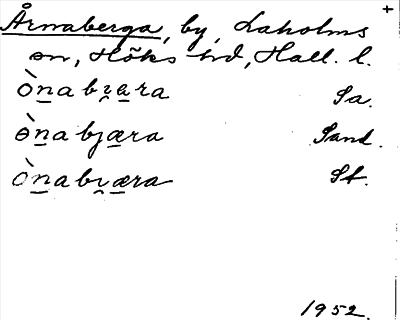 Årnaberga, by, Laholms +
sn, Höks hd, Hall. l.
ònabi̯a̱ra Sa.
ònabjæra Sand.
ònabi̯æra St.
1952.